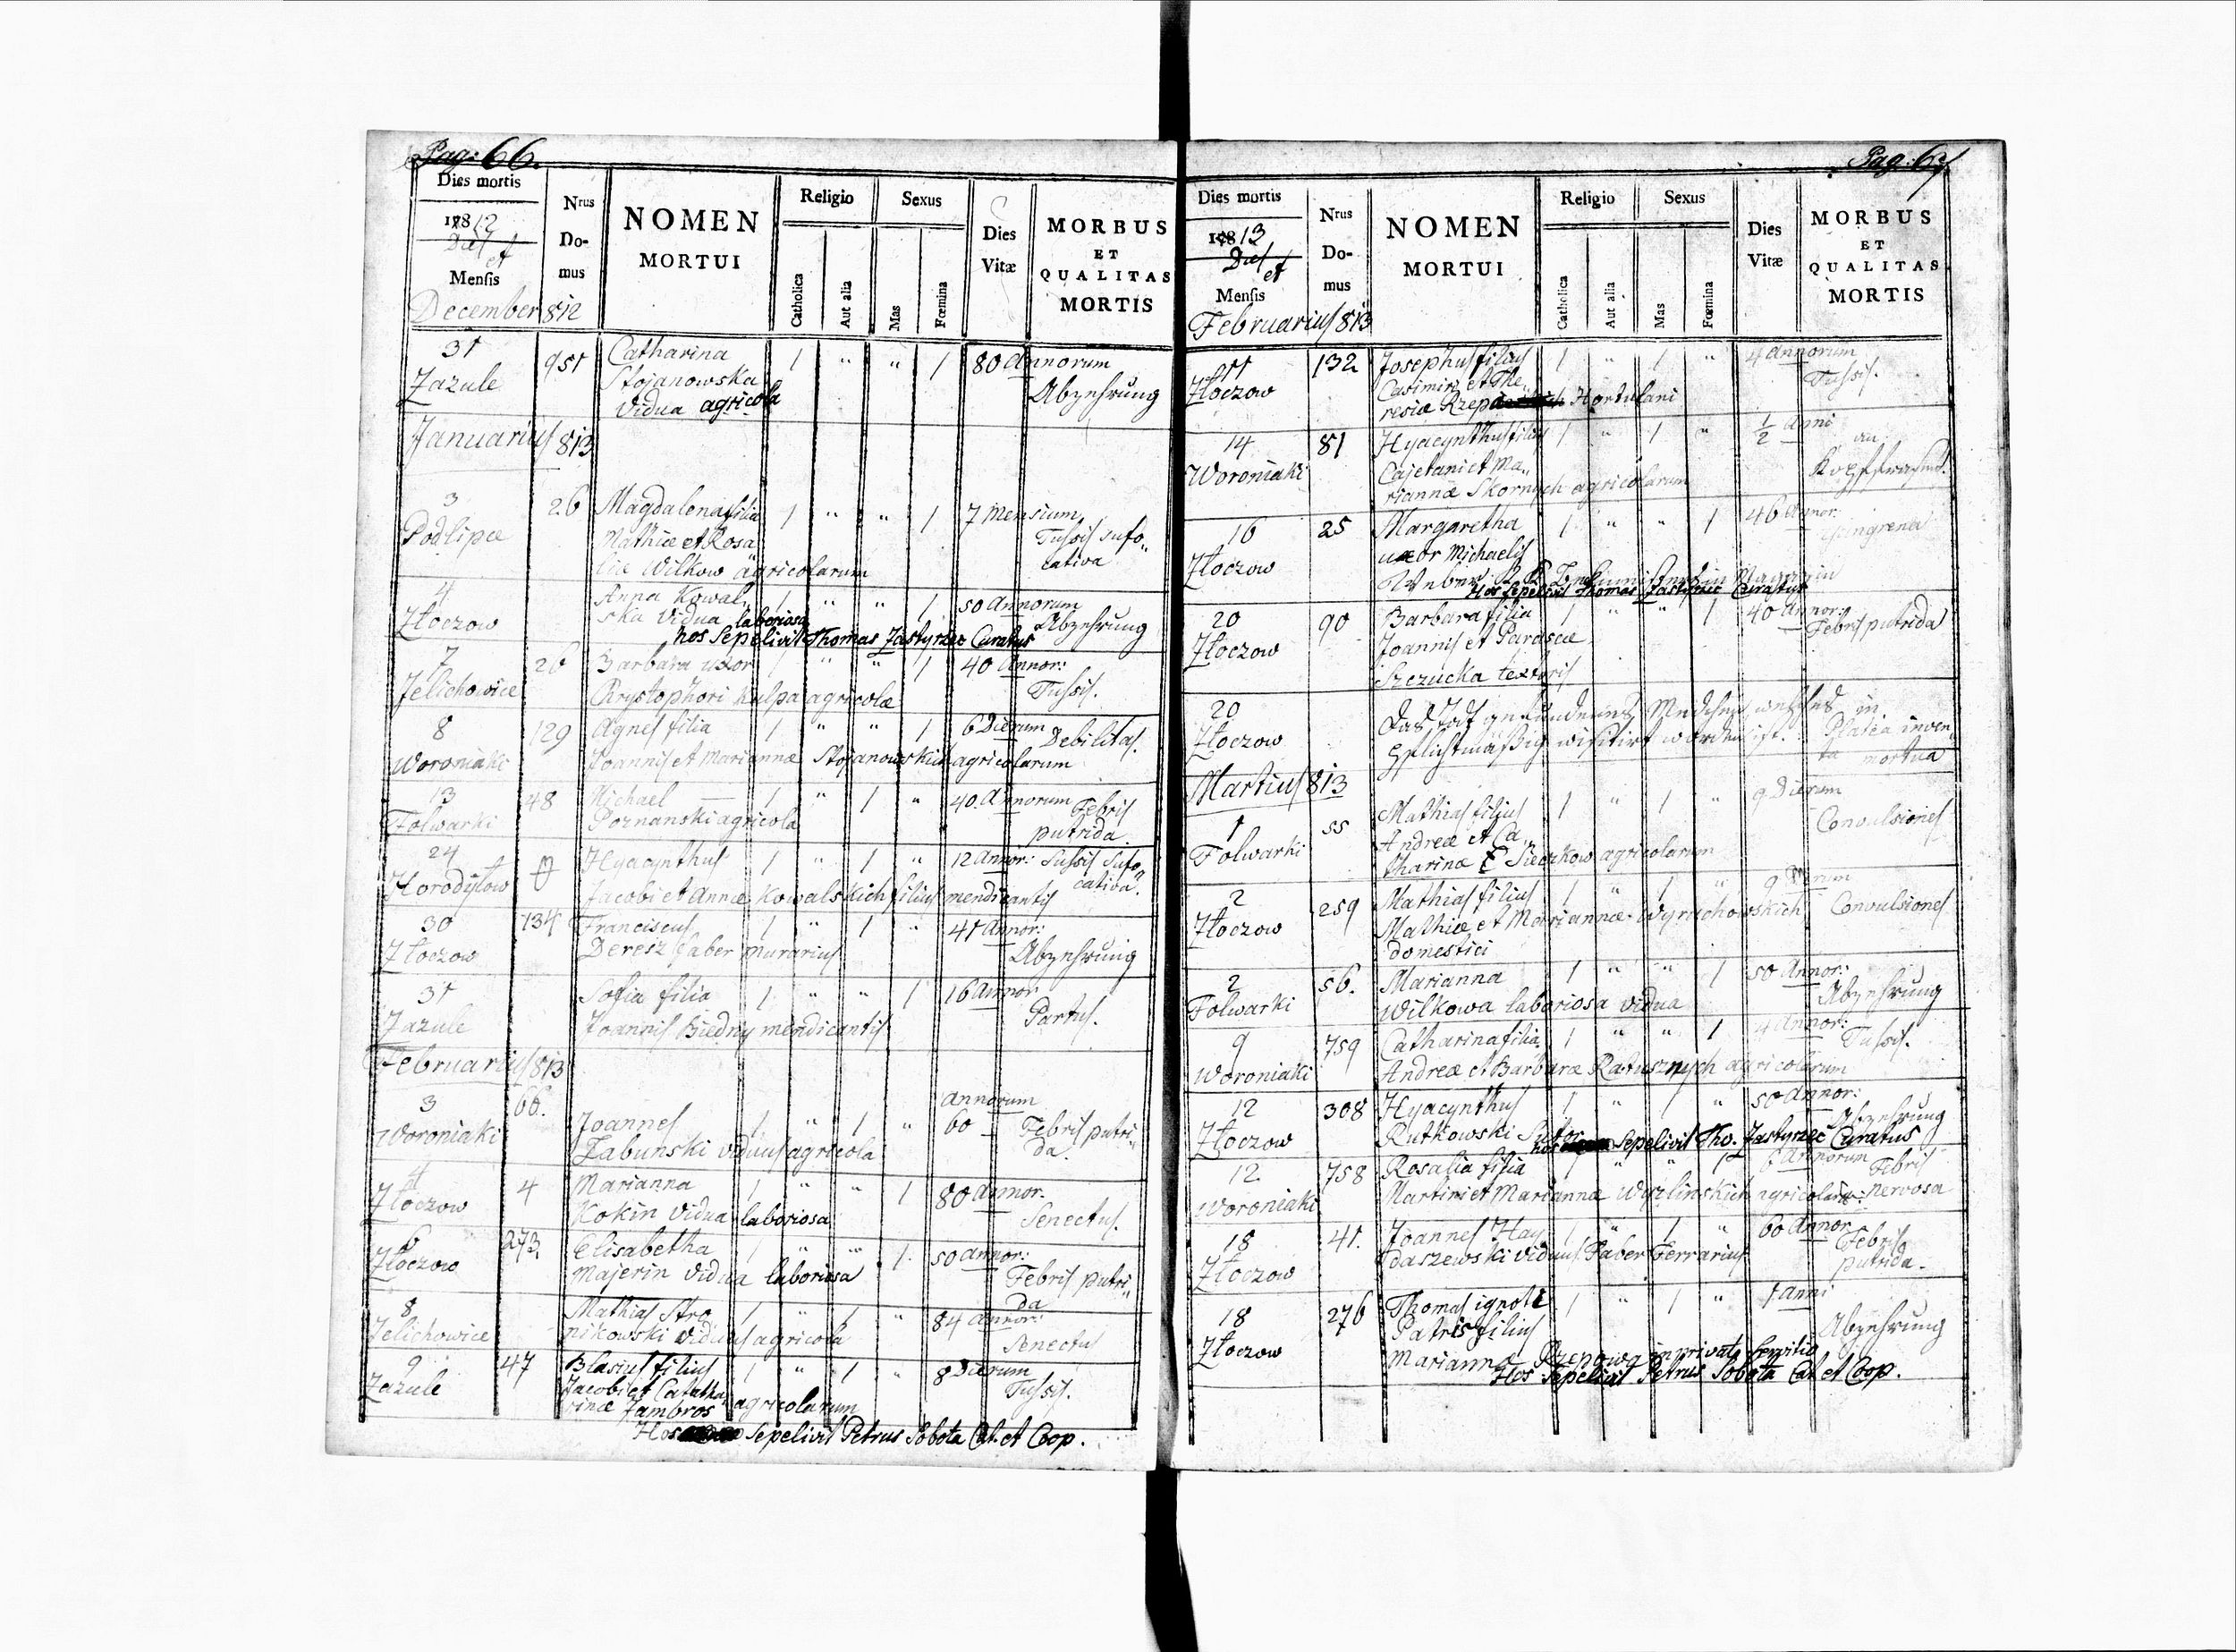 Pag: 66.
Dies mortis
1812
Dies et
Mensis
December 812
Nrus Domus
NOMEN
MORTUI
Religio
Catholica
Aut alia
Sexus
Mas
Fœmina
Dies
Vitæ
MORBUS
ET
QUALITAS
MORTIS
31 951 Catharina 1 " " 1 80 Annorum
Zazule Stojanowska
Vidua agricola Abzehrung
Januarius 813
3 26 Magdalena filia 1 " " 1 7 Mensium
Podlipce Mathiæ et Rosa Tussis sufo„
liæ Wilkow agricolarum cativa
4 Anna Kowal„ 1 " " 1 50 Annorum
Złoczow ska Vidua laboriosa Abzehrung
hos Sepelivit Thomas Jastyrzec Curatus
7 26 Barbara uxor 1 " " 1 40 Annor:
Jelichowice Chrystophori Kulpa agricolæ Tussis.
8 129 Agnes filia 1 " " 1 6 Dierum Debilitas.
Woroniaki Joannis et Mariannæ Stojanowskich agricolarum
13 48 Michael 1 " 1 " 40. Annorum Febris
Folwarki Poznanski agricola putrida
24 Hyacynthus 1 " 1 " 12 Annor: Tussis Sufo„
Horodyłow Jacobi et Annæ Kowalskich filius mendicantis cativa.
30 134 Franciscus 1 " 1 " 41 Annor:
Złoczow Deresz faber murarius Abzehrung
31 Sofia filia 1 " " 1 16 Annor
Zazule Joannis Biedny mendicantis Partus.
Februarius 813
3 66. Joannes 1 " 1 " annorum 60 Febris putri„
Woroniaki Zabunski viduus agricola da.
4 4 Marianna 1 " " 1 80 Annor.
Złoczow Kokin Vidua laboriosa Senectus.
6 273. Elisabetha 1 " " 1. 50 annor:
Złoczow Majerin Vidua laboriosa Febris putri„
da
8 Mathias Stro 1 " 1 " 84 Annor:
Jelichowice nikowski viduus agricola Senectus
9 47 Blasius filius 1 " 1 " 8 Dierum
Zazule Jacobi et Catha„ Tussis.
rinæ Jambros agricolarum
Hos Sepelivit Petrus Sobota Cat. et Coop.
Pag: 67
Dies mortis
1813
Dies et
Mensis
Februarius 813
Nrus Domus
NOMEN
MORTUI
Religio
Catholica
Aut alia
Sexus
Mas
Fœmina
Dies
Vitæ
MORBUS
ET
QUALITAS
MORTIS
11 132 Josephus filius 1 " 1 " 4 Annorum
Złoczow Casimiri et The„ Tussis.
resiæ Hortulani
14 81 Hyacynthus filius 1 " 1 " ½ Anni
Woroniaki Cajetani et Ma„
riannæ Skornych agricolarum
16 25 Margaretha 1 " " 1 46 Annor:
Złoczow uxor Michaelis
Weber
Hos Sepelivit Thomas Jastyrzec Curatus
20 90 Barbara filia 1 " " 1 40 Annor:
Złoczow Joannis et Parascæ Febris putrida
Szczucka textoris
20 Das Todt gefundenes Medchen welches in
Złoczow pflichtmäßig visitirt worden ist. Platea inven
ta mortua
Martius 813
1 55 Mathias filius 1 " 1 " 9 Dierum
Folwarki Andreæ et Ca„ Convulsiones
tharinæ Sieczkow agricolarum
2 259 Mathias filius 1 " 1 " 9 Dierum
Złoczow Mathiæ et Mariannæ Wyruchowskich Convulsiones
domestici
2 56. Marianna 1 " " 1 50 Annor:
Folwarki Wilkowa laboriosa vidua Abzehrung
9 759 Catharina filia 1 " " 1 4 Annor: Tussis.
Woroniaki Andreæ et Barbaræ Ratusznych agricolarum
12 308 Hyacynthus 1 " 1 " 50 Annor:
Złoczow Rutkowski Sutor Abzehrung
hos Sepelivit Tho. Jastyrzec Curatus
12. 758 Rosalia filia 1 " " 1 6 Annorum Febris
Woroniaki Martini et Mariannæ Wyzlinskich agricolarum: nervosa
18 41. Joannes Hay 1 " 1 " 60 Annor
Złoczow daszewski viduus Faber Ferrarius Febris
putrida.
18 276 Thomas ignoti 1 " 1 " 1 Anni
Złoczow Patris filius Abzehrung
Marianna Rzepowa in privato servitio
Hos Sepelivit Petrus Sobota Cat et Coop.